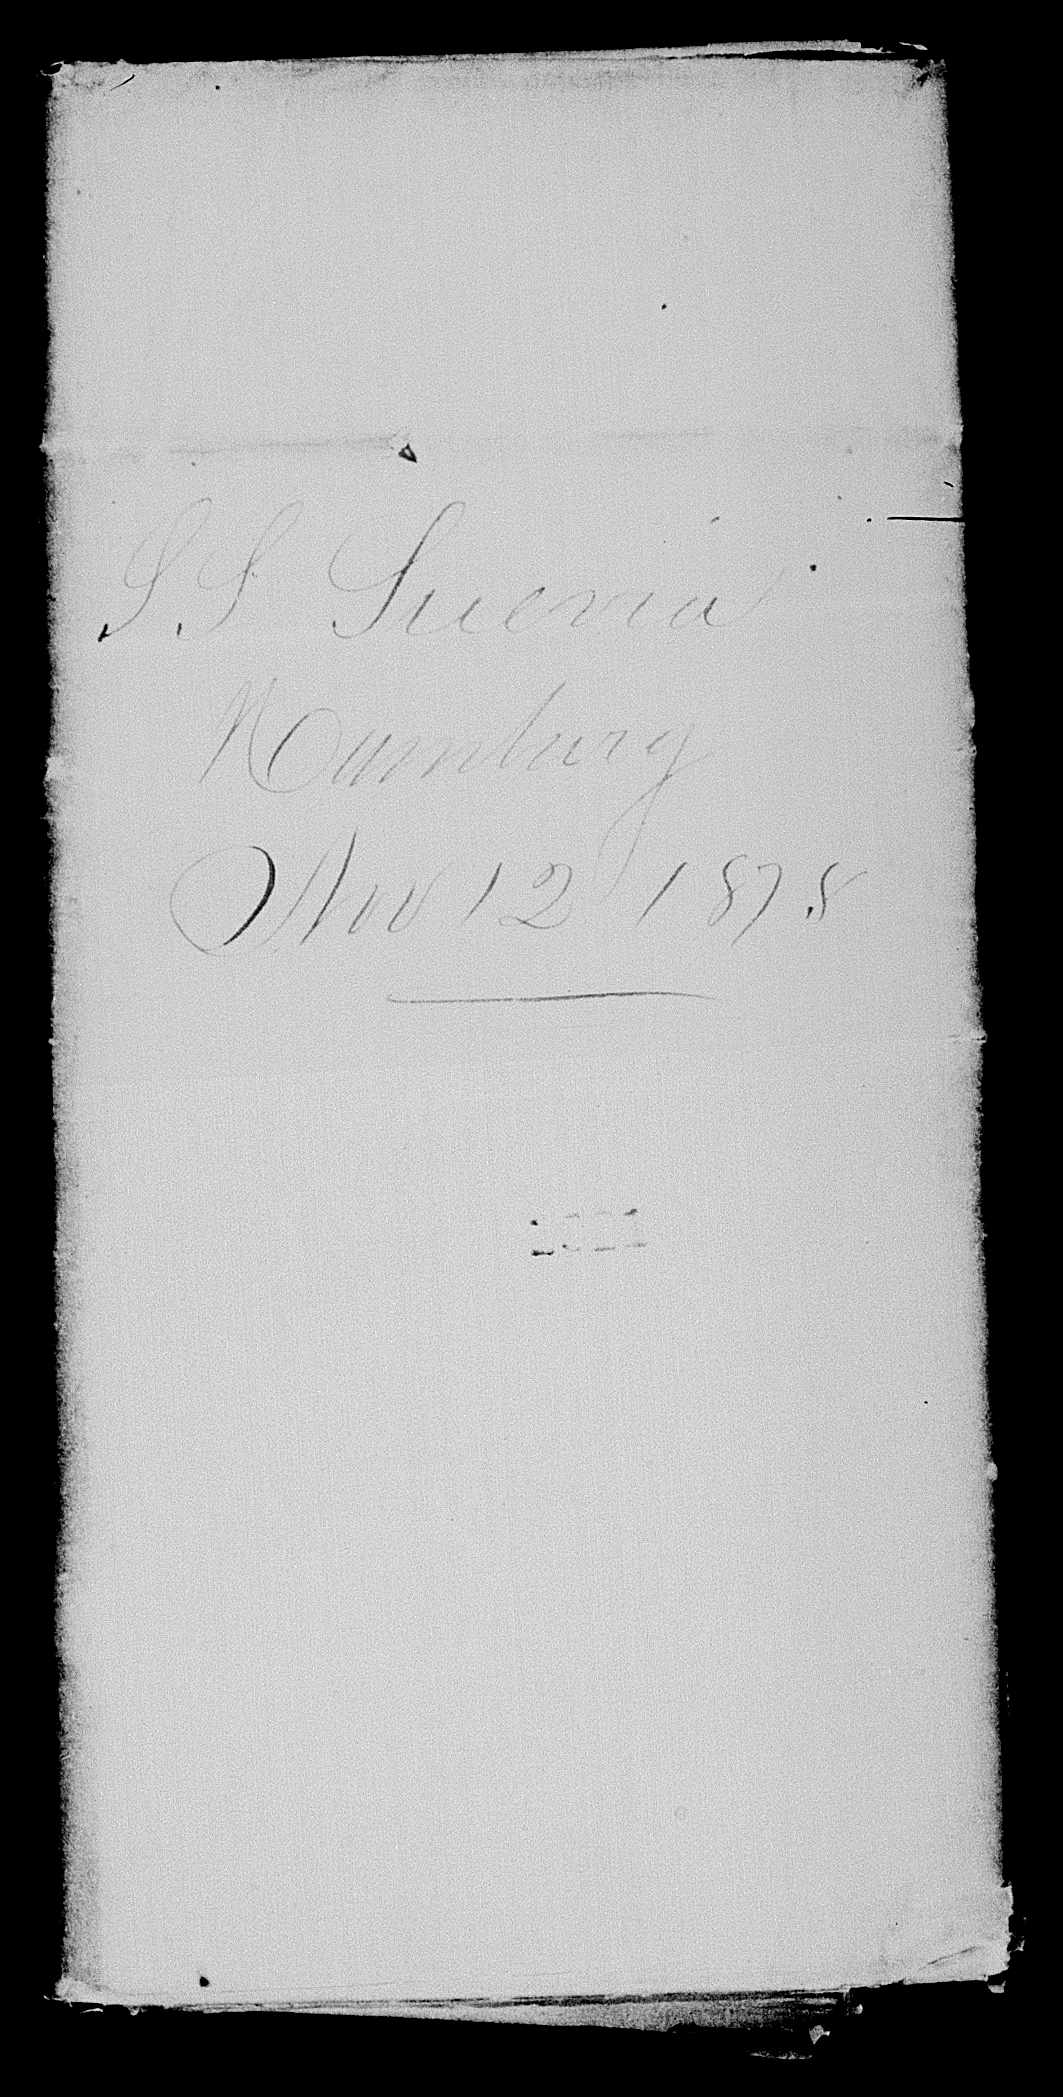 SS Suevia
Hamburg
Nov 12 1878